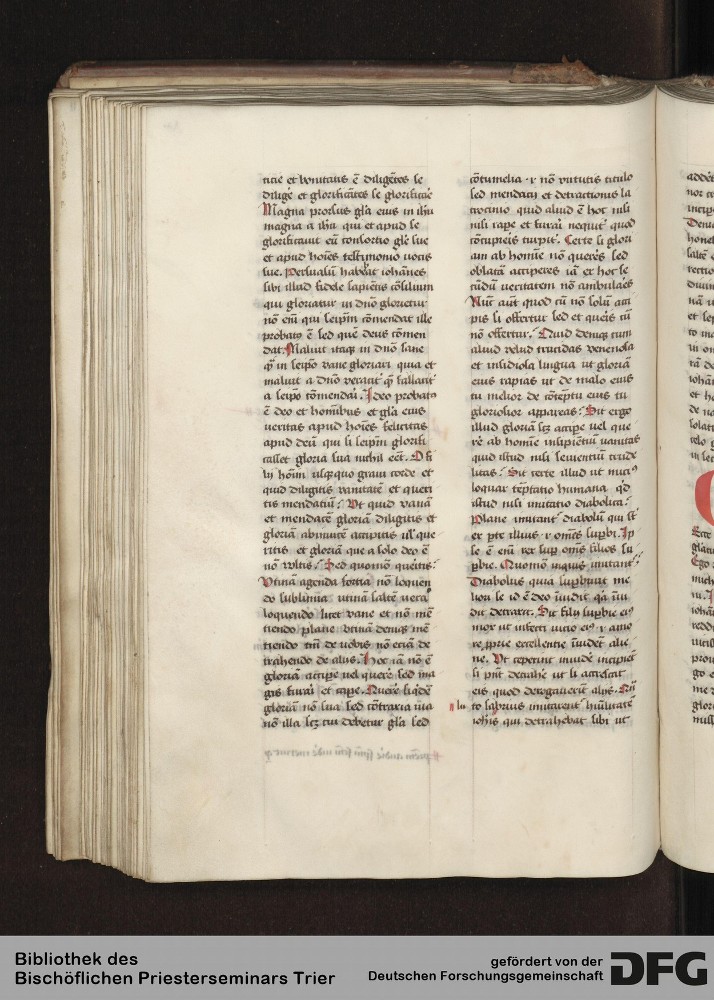 ticie et bonitatis ē diligētes se
dilige et glorificātes se glorificare
Magna prorsus gl̄a eius in ih̄u
magna a ih̄u qui et apud se
glorificauit eū consortio gl̄e sue
et apud hoīes testimonio uocis
sue. Persuasum habeāt iohānes
sibi illud fidele sapiētis cōsilium
qui gloriatur in dn̄o glorietur
nō em̄ qui seip̄m cōmendat ille
probatꝰ ē sed quē deus cōmen
dat. Maluit itaqꝫ in dn̄o sane
qͣ in seip̄o vane gloriari quia et
maluit a dn̄o veracit' qͣ fallacit'
a seip̄o cōmendari. Ideo probatꝰ
ē deo et hominibus et gl̄a eius
veritas apud hoīes felicitas
apud deū qui si seip̄m glorifi
casset gloria sua nichil eēt. O fi
lij hoīm usqꝫquo graui corde et
quid diligitis vanitatē et queri
tis mendatium? Vt quid vanā
et mendacē gloriā diligitis et
gloriā abinuicē accipitis
ritis et gloriā que a solo deo ē
nō vultis? Sed quomō queritis?
Vtinā agenda fortia nō loquen
do sublimia utinā saltē uera
loquendo licet vane et nō mē
tiendo plane vtinā deniqꝫ mē
tiendo tm̄ de vobis nō eciā de
trahendo de alijs. Hoc iā nō ē
gloriā accipe uel querē sed ma
gis furari et rape. Querē siqͥdē
gloriā nō sua sed cōtraria uia
nō illa scꝫ cui debetur gl̄a sed
cōtumelia ⁊ nō virtutis titulo
sed mendacij et detractionis la
trocinio quid aliud ē hoc nisi
nisi rape et furari nequit' quod
cōcupieris turpit'. Certe si glori
am ab homine nō querēs sed
oblatā acciperes iā ex hoc se
cūdū veritatem nō ambulares
Nūc aūt quod cū nō solū acci
pis si offertur sed et queris cū
nō offertur? Quid deniqꝫ cum
aliud velud trucidas venenosa
et insidiosa lingua ut gloriā
eius rapias ut de malo eius
tu melior de cōtēptu eius tu
gloriosior appareas? Sit ergo
illud gloriā scꝫ accipe uel que
rē ab homine insipiētiū uanitas
quid istud nisi seuientiū crude
litas? Sit certe illud ut miciꝰ
loquar tēptatio humana qͥd
istud nisi imitatio diabolica?
Plane imitant' diabolū qui sūt
ex pte illius ⁊ om̄es supbi. Ip
se ē em̄ rex sup om̄s filios su
pbie. Quomō inquis imitant'?
Diabolus quia supbiuit me
liori se id ē deo īuidit qͣ īui
dit detraxit. Sic filij supbie eiꝰ
mox ut infecti uicio eiꝰ ⁊ amo
re pprie excellentie īuidēt alie
ne. Vt ceperint inuidē incipiēt
si pn̄t detrahē ut si accrescat
eis quod derogauerint alijs.
to salubrius imitarent' hūilitatē
ioh̄is qui detrahebat sibi ut
Bibliothek des
Bischöflichen Priesterseminars Trier
gefördert von der
Deutschen Forschungsgemeinschaft
DFG